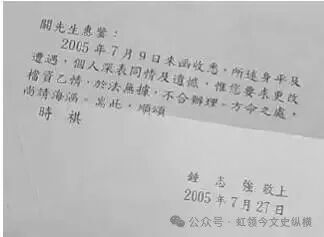 關先生惠鑒：
2005年7月9日來函收悉，所述身平及
遭遇，個人深表同情及遺憾，惟您要求更改
檔資乙情，於法無據，不合辦理。方命之處，
尚請海涵。耑此，順頌
時祺
鍾志強敬上
2005年7月27日
公众号·虹领今文史纵横